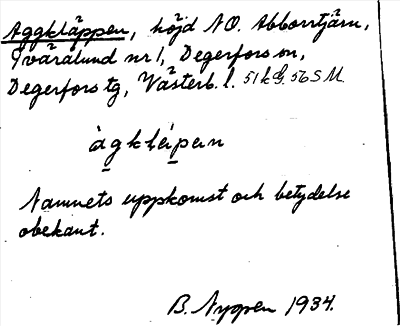 Aggkläppen, höjd NO. Abborrtjärn,
Tvärålund nr 1, Degerfors sn,
Degerfors tg, Västerb. l. 51 kg. 56 S M.
àgkläpen
Namnets uppkomst och betydelse
obekant.
B. Nygren 1934.